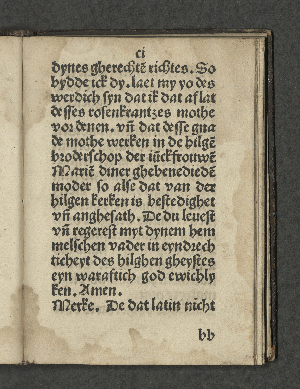 ci
dynes gherechtē richtes. So
bydde ick dy. laet my yo des
werdich syn dat ik dat aflat
desses rosenkrantzes mothe
vordenen. vñ dat desse gna
de mothe werken in de hilgē
broderschop der iūckfrouwē
Mariē diner ghebenediedē
moder so alse dat van der
hilgen kerken is bestedighet
vñ anghesath. De du leuest
vñ regerest myt dynem hem
melschen vader in eyndrech
ticheyt des hilghen gheystes
eyn waraftich god ewichly
ken. Amen.
Merke. De dat latin nicht
bb